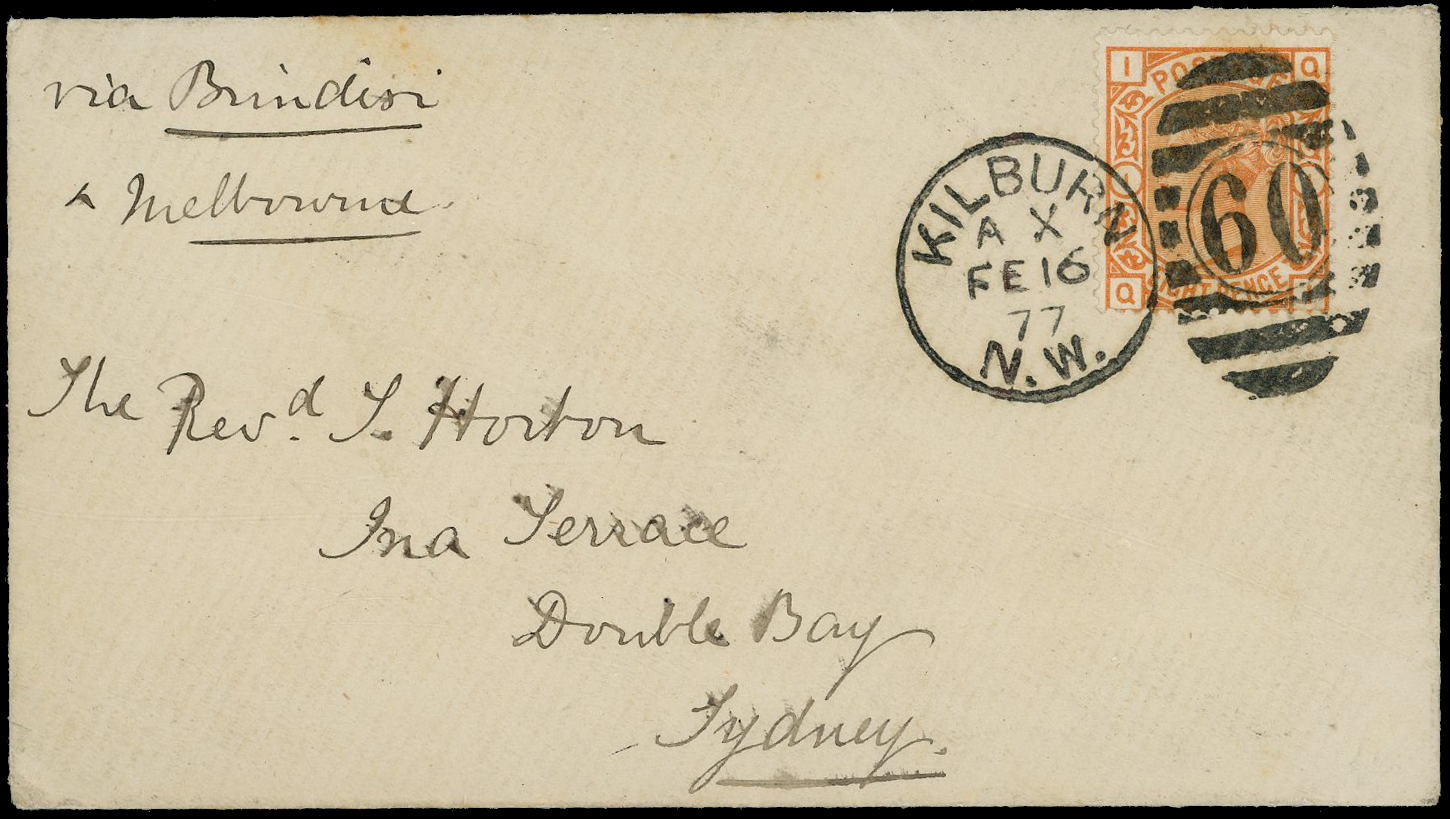 via Brindisi
& Melbourne
The Revd. T. Horton
Ina Terrace
Double Bay
Sydney.
KILBURN
A X
FE 16
77
N.W.
60
I Q
POSTAGE
EIGHT PENCE
Q I